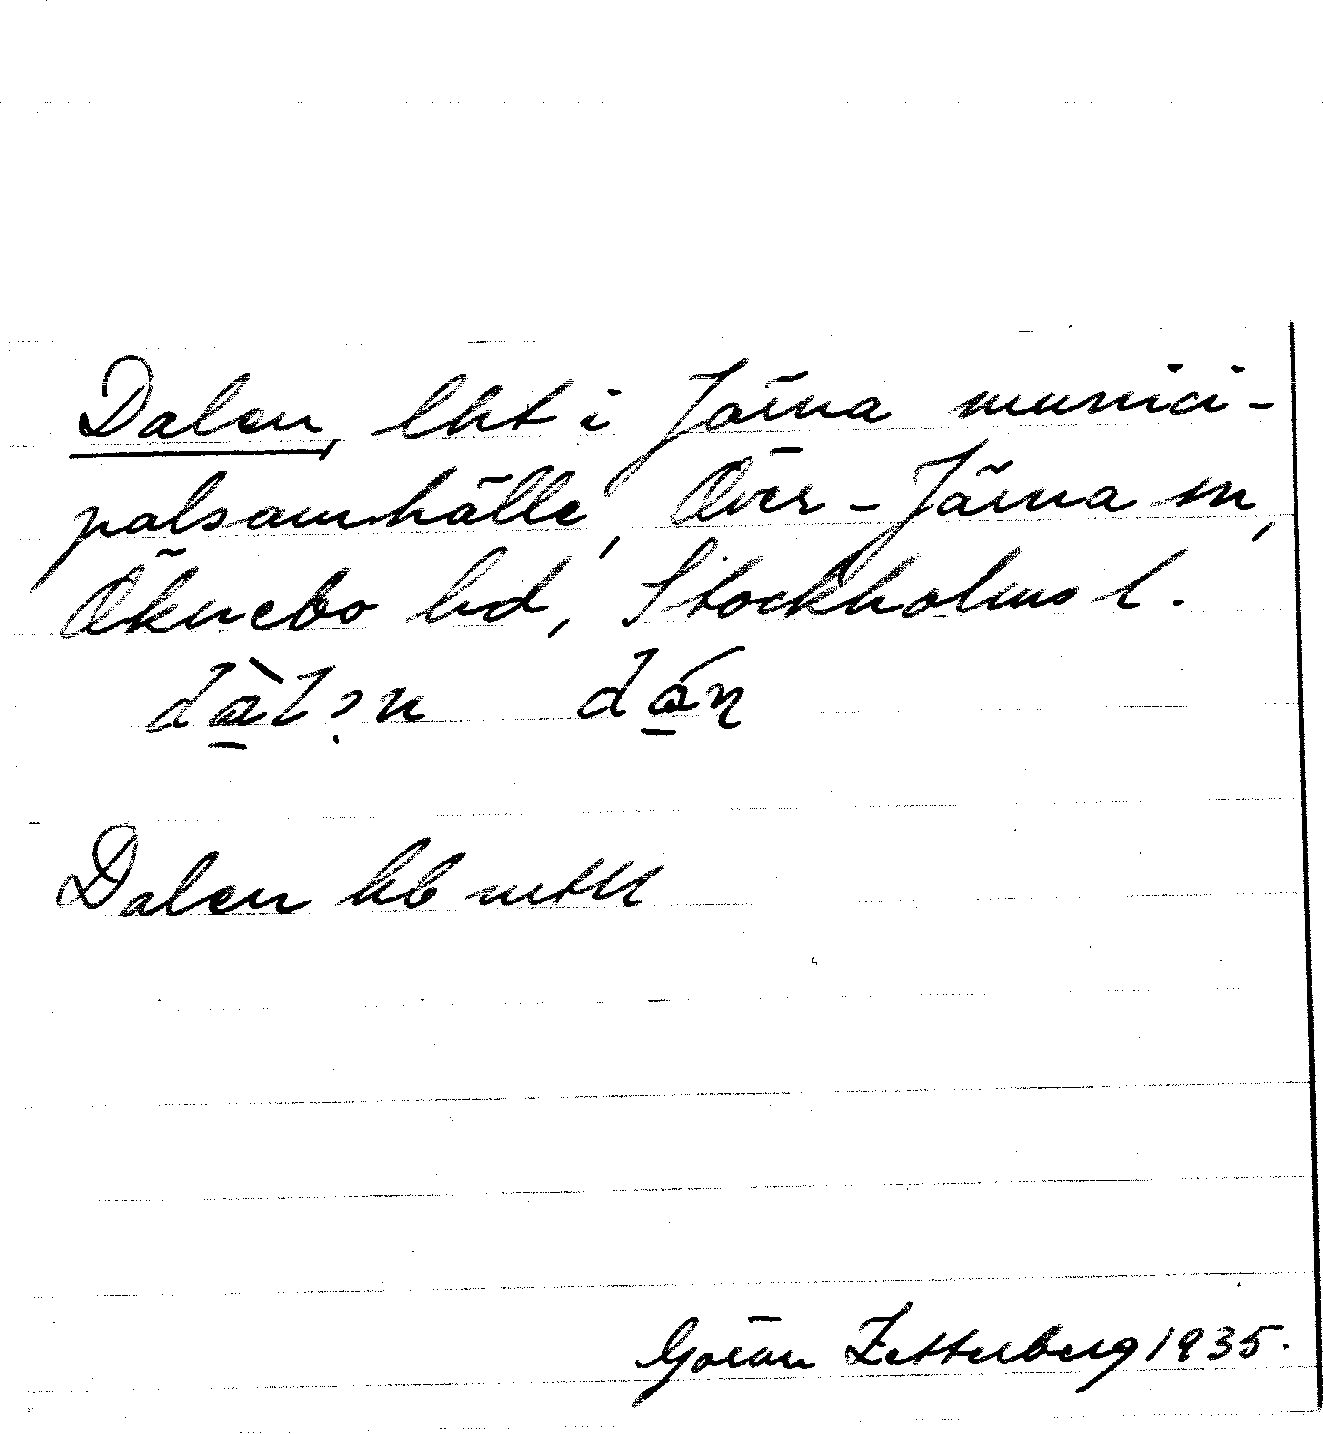 Dalen, lht i Järna munici-
palsamhälle, Över-Järna sn,
Öknebo hd, Stockholms l.
Dalen hb
Göran Zetterberg 1935.